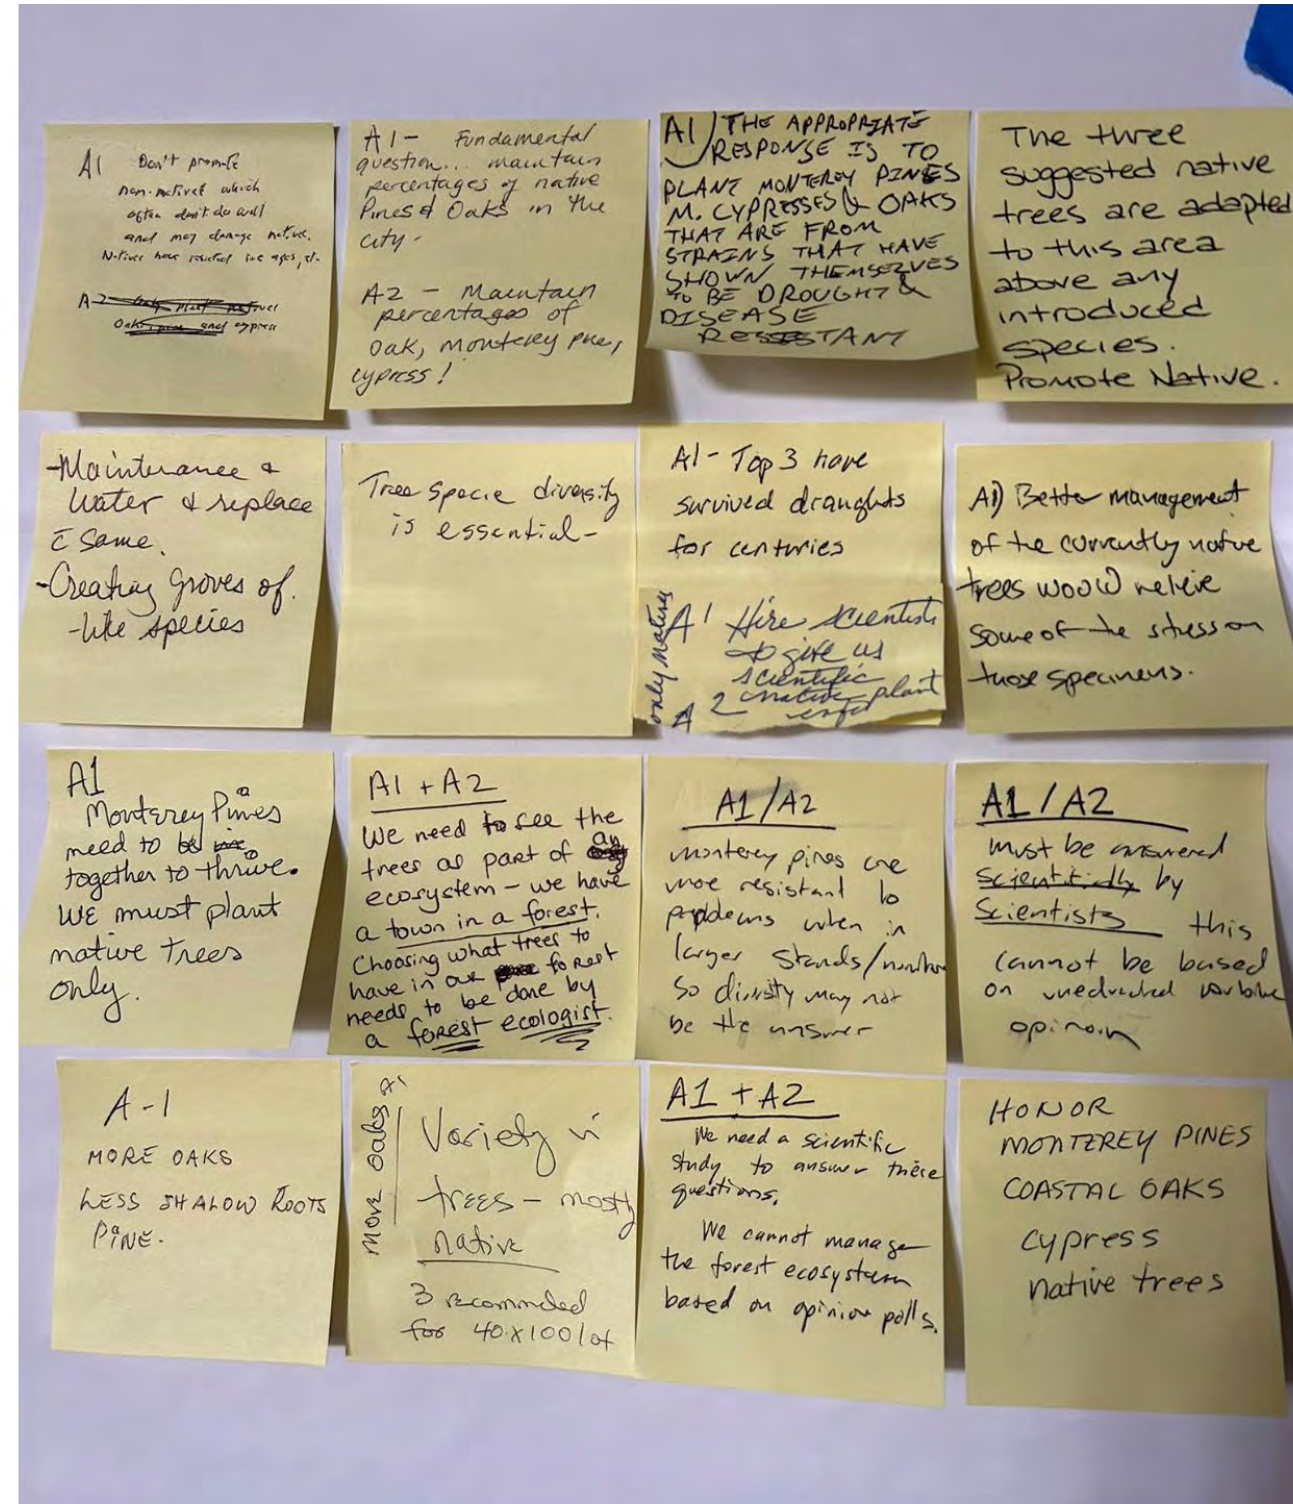 A1 Don't promote
non-natives which
often don't do well
and may damage natives.
Natives have resisted the ages,
A2 Only plant natives
Oak, pine and cypress
A1 - Fundamental
question... maintain
percentages of native
Pines & Oaks in the
city -
A2 - Maintain
percentages of
Oak, Monterey pine,
cypress!
A1) THE APPROPRIATE
RESPONSE IS TO
PLANT MONTEREY PINES
M. CYPRESSES & OAKS
THAT ARE FROM
STRAINS THAT HAVE
SHOWN THEMSELVES
TO BE DROUGHT &
DISEASE
RESISTANT
The three
suggested native
trees are adapted
to this area
above any
introduced
species.
Promote Native.
-Maintenance &
water & replace
c̄ same.
-Creating groves of
-like species
Tree specie diversity
is essential-
A1- Top 3 have
survived droughts
for centuries
only natives
A1 Hire scientists
to give us
scientific
A2 native plant
info
A1) Better management
of the currently native
trees would relieve
some of the stress on
those specimens.
A1
Monterey Pines
need to be
together to thrive.
WE must plant
native Trees
only.
A1 + A2
We need to see the
trees as part of an
ecosystem - we have
a town in a forest.
Choosing what trees to
have in our forest
needs to be done by
a forest ecologist.
A1/A2
monterey pines are
more resistant to
problems when in
larger stands/
so diversity may not
be the answer
A1/A2
must be answered
scientifically by
Scientists this
cannot be based
on uneducated
opinoin
A-1
MORE OAKS
LESS SHALOW ROOTS
PINE.
More oaks A1
Variety in
trees - mostly
native
3 recommded
for 40x100 lot
A1 + A2
We need a scientific
study to answer these
questions.
We cannot manage
the forest ecosystem
based on opinion polls.
HONOR
MONTEREY PINES
COASTAL OAKS
cypress
native trees